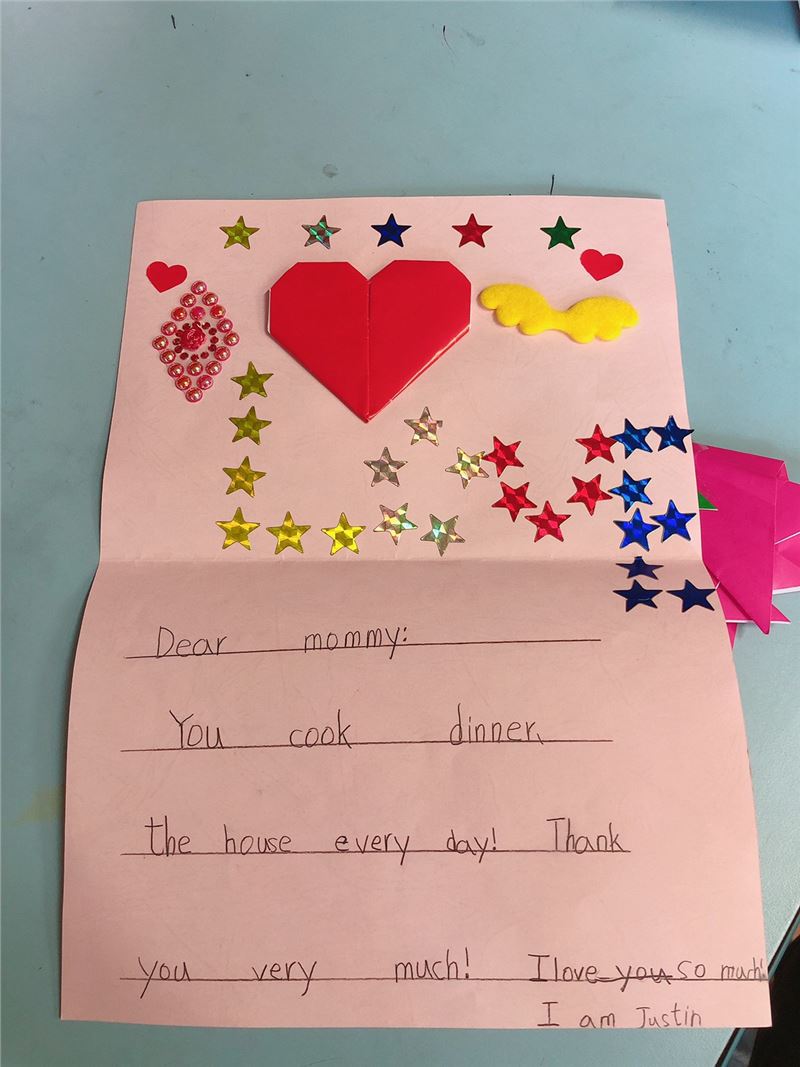 LOVE
Dear mommy:
You cook dinner.
the house every day! Thank
you very much! I love you so much!
I am Justin